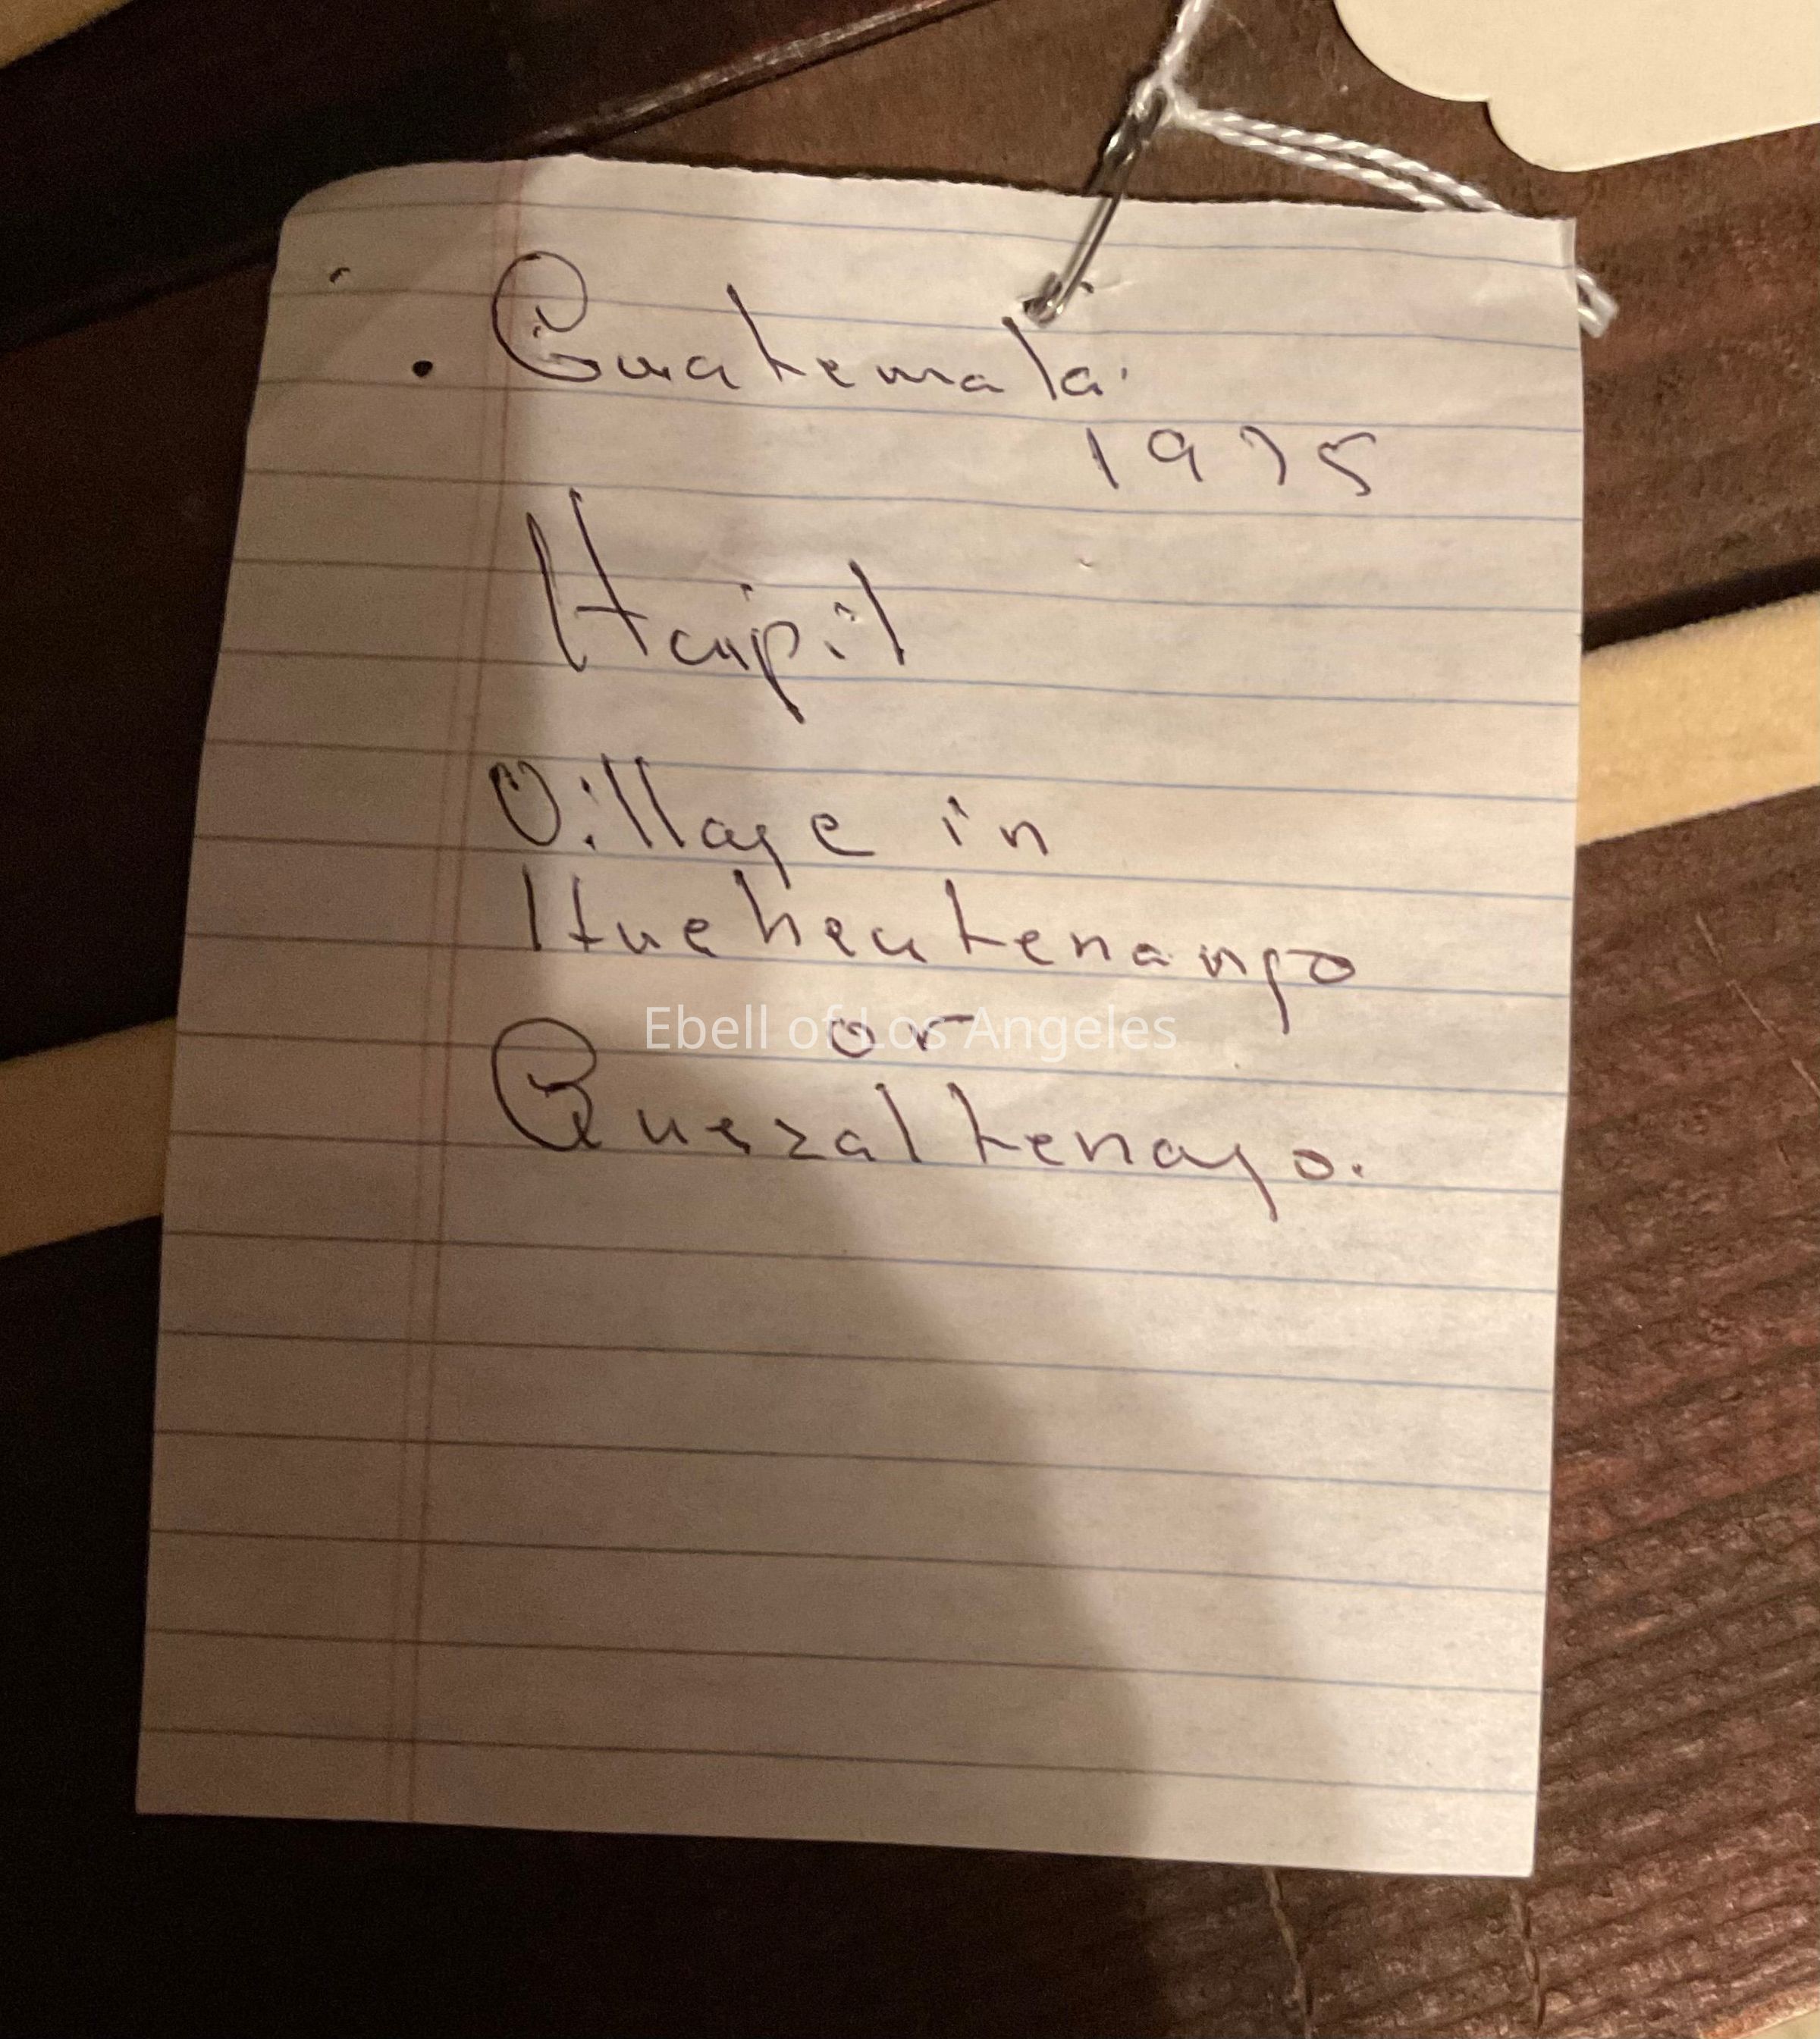 . Guatemala.
1975
Huipil
Village in
Hueheutenango
or
Quezaltenago.
Ebell of Los Angeles